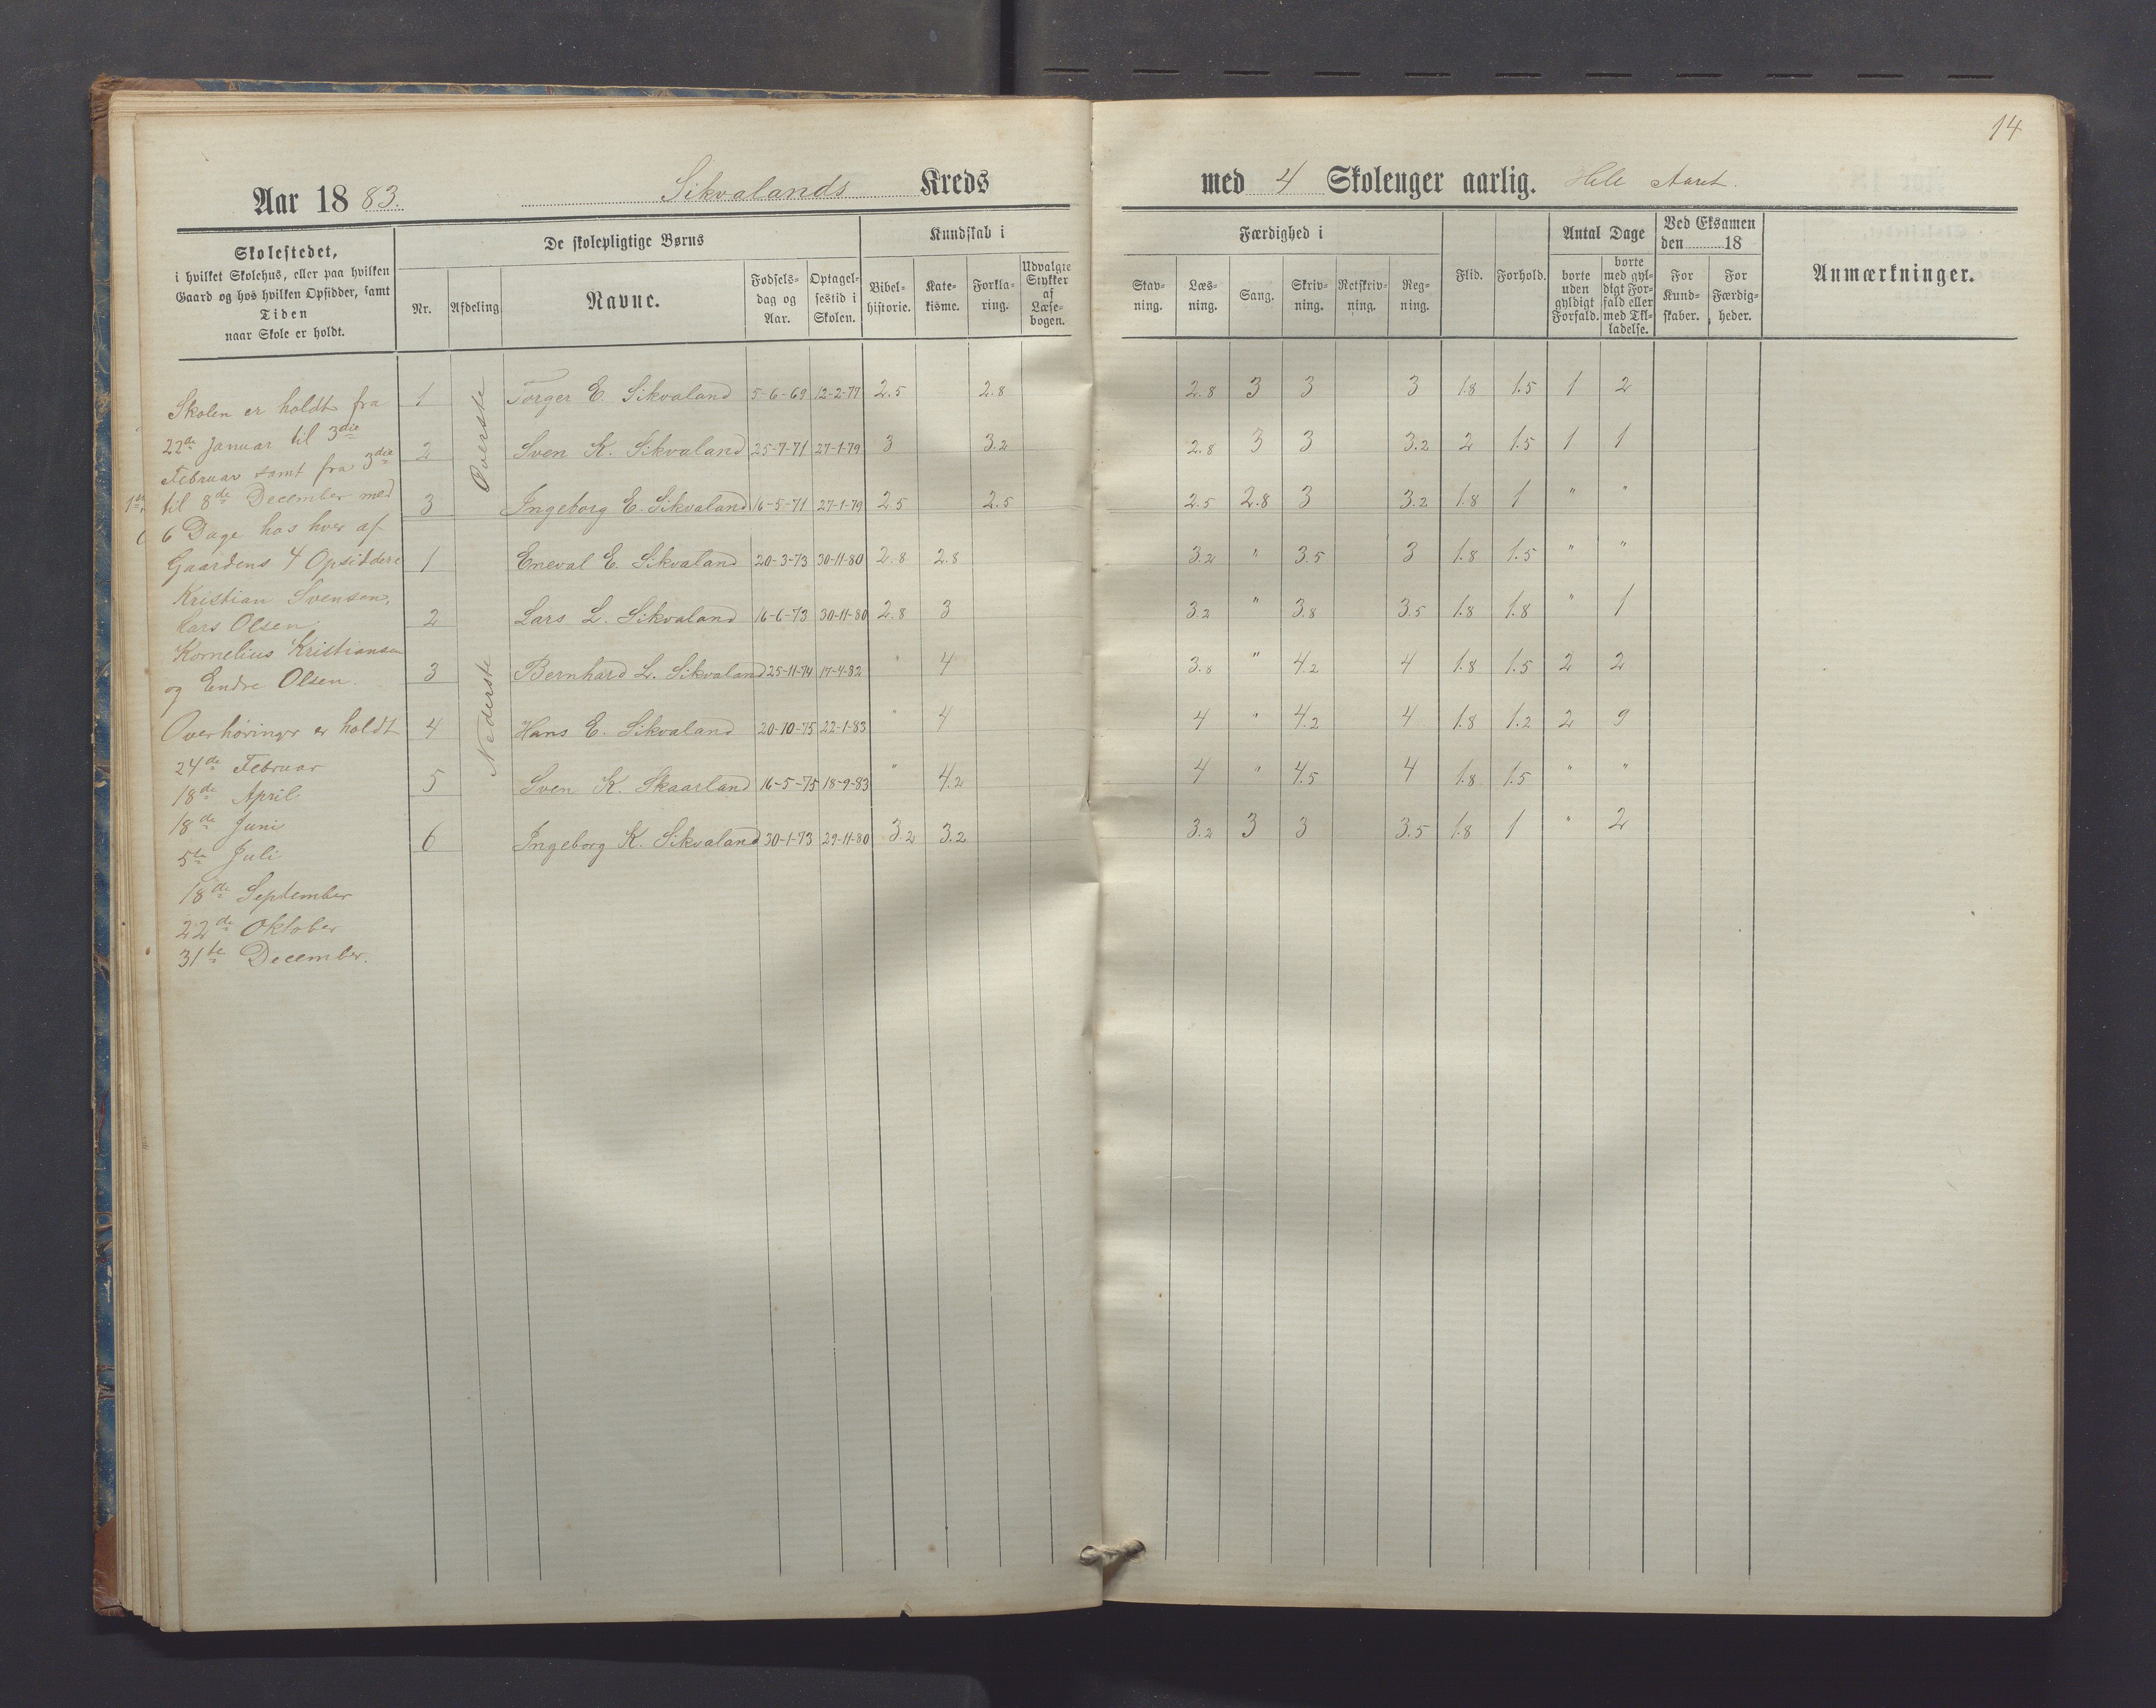 14
Aar 1883. Sikvalands Kreds med 4 Skoleuger aarlig. Hele Aaret.
Skolestedet,
i hvilket Skolehus, eller paa hvilken
Gaard og hos hvilken Opsidder, samt
Tiden
naar Skole er holdt.
De skolepligtige Børns
Nr. Afdeling Navne. Fødselsdag og Aar. Optagelsestid i Skolen.
Kundskab i
Bibelhistorie. Katekisme. Forklaring. Udvalgte Stykker af Læsebogen.
Færdighed i
Stavning. Læsning. Sang. Skrivning. Retskrivning. Regning.
Flid. Forhold.
Antal Dage
borte uden gyldigt Forfald. borte med gyldigt Forfald eller med Tilladelse.
Ved Eksamen
den 18
For Kundskaber. For Færdigheder.
Anmærkninger.
Skolen er holdt fra
22de Januar til 3die
Februar samt fra 3die
til 8de December med
6 Dage hos hver af
Gaardens 4 Opsiddere
Kristian Svensen,
Lars Olsen,
Kornelius Kristiansen
og Endre Olsen.
Overhøringer er holdt
24de Februar
18de April
18de Juni
5te Juli
18de September
22de Oktober
31te December.
Øverste
1 Torger E. Sikvaland 5-6-69 12-2-77 2.5 2.8 2.8 3 3 3 1.8 1.5 1 2
2 Sven K. Sikvaland 25-7-71 27-1-79 3 3.2 2.8 3 3 3.2 2 1.5 1 1
3 Ingeborg E. Sikvaland 16-5-71 27-1-79 2.5 2.5 2.5 2.8 3 3.2 1.8 1 " "
Nederste
1 Eneval E. Sikvaland 20-3-73 30-11-80 2.8 2.8 3.2 " 3.5 3 1.8 1.5 " "
2 Lars L. Sikvaland 16-6-73 30-11-80 2.8 3 3.2 " 3.8 3.5 1.8 1.8 " 1
3 Bernhard L. Sikvaland 25-11-74 17-4-82 " 4 3.8 " 4.2 4 1.8 1.5 2 2
4 Hans E. Sikvaland 20-10-75 22-1-83 " 4 4 " 4.2 4 1.8 1.2 2 9
5 Sven K. Skaarland 16-5-75 18-9-83 " 4.2 4 " 4.5 4 1.8 1.5 " "
6 Ingeborg K. Sikvaland 30-1-73 29-11-80 3.2 3.2 3.2 3 3 3.5 1.8 1 " 2